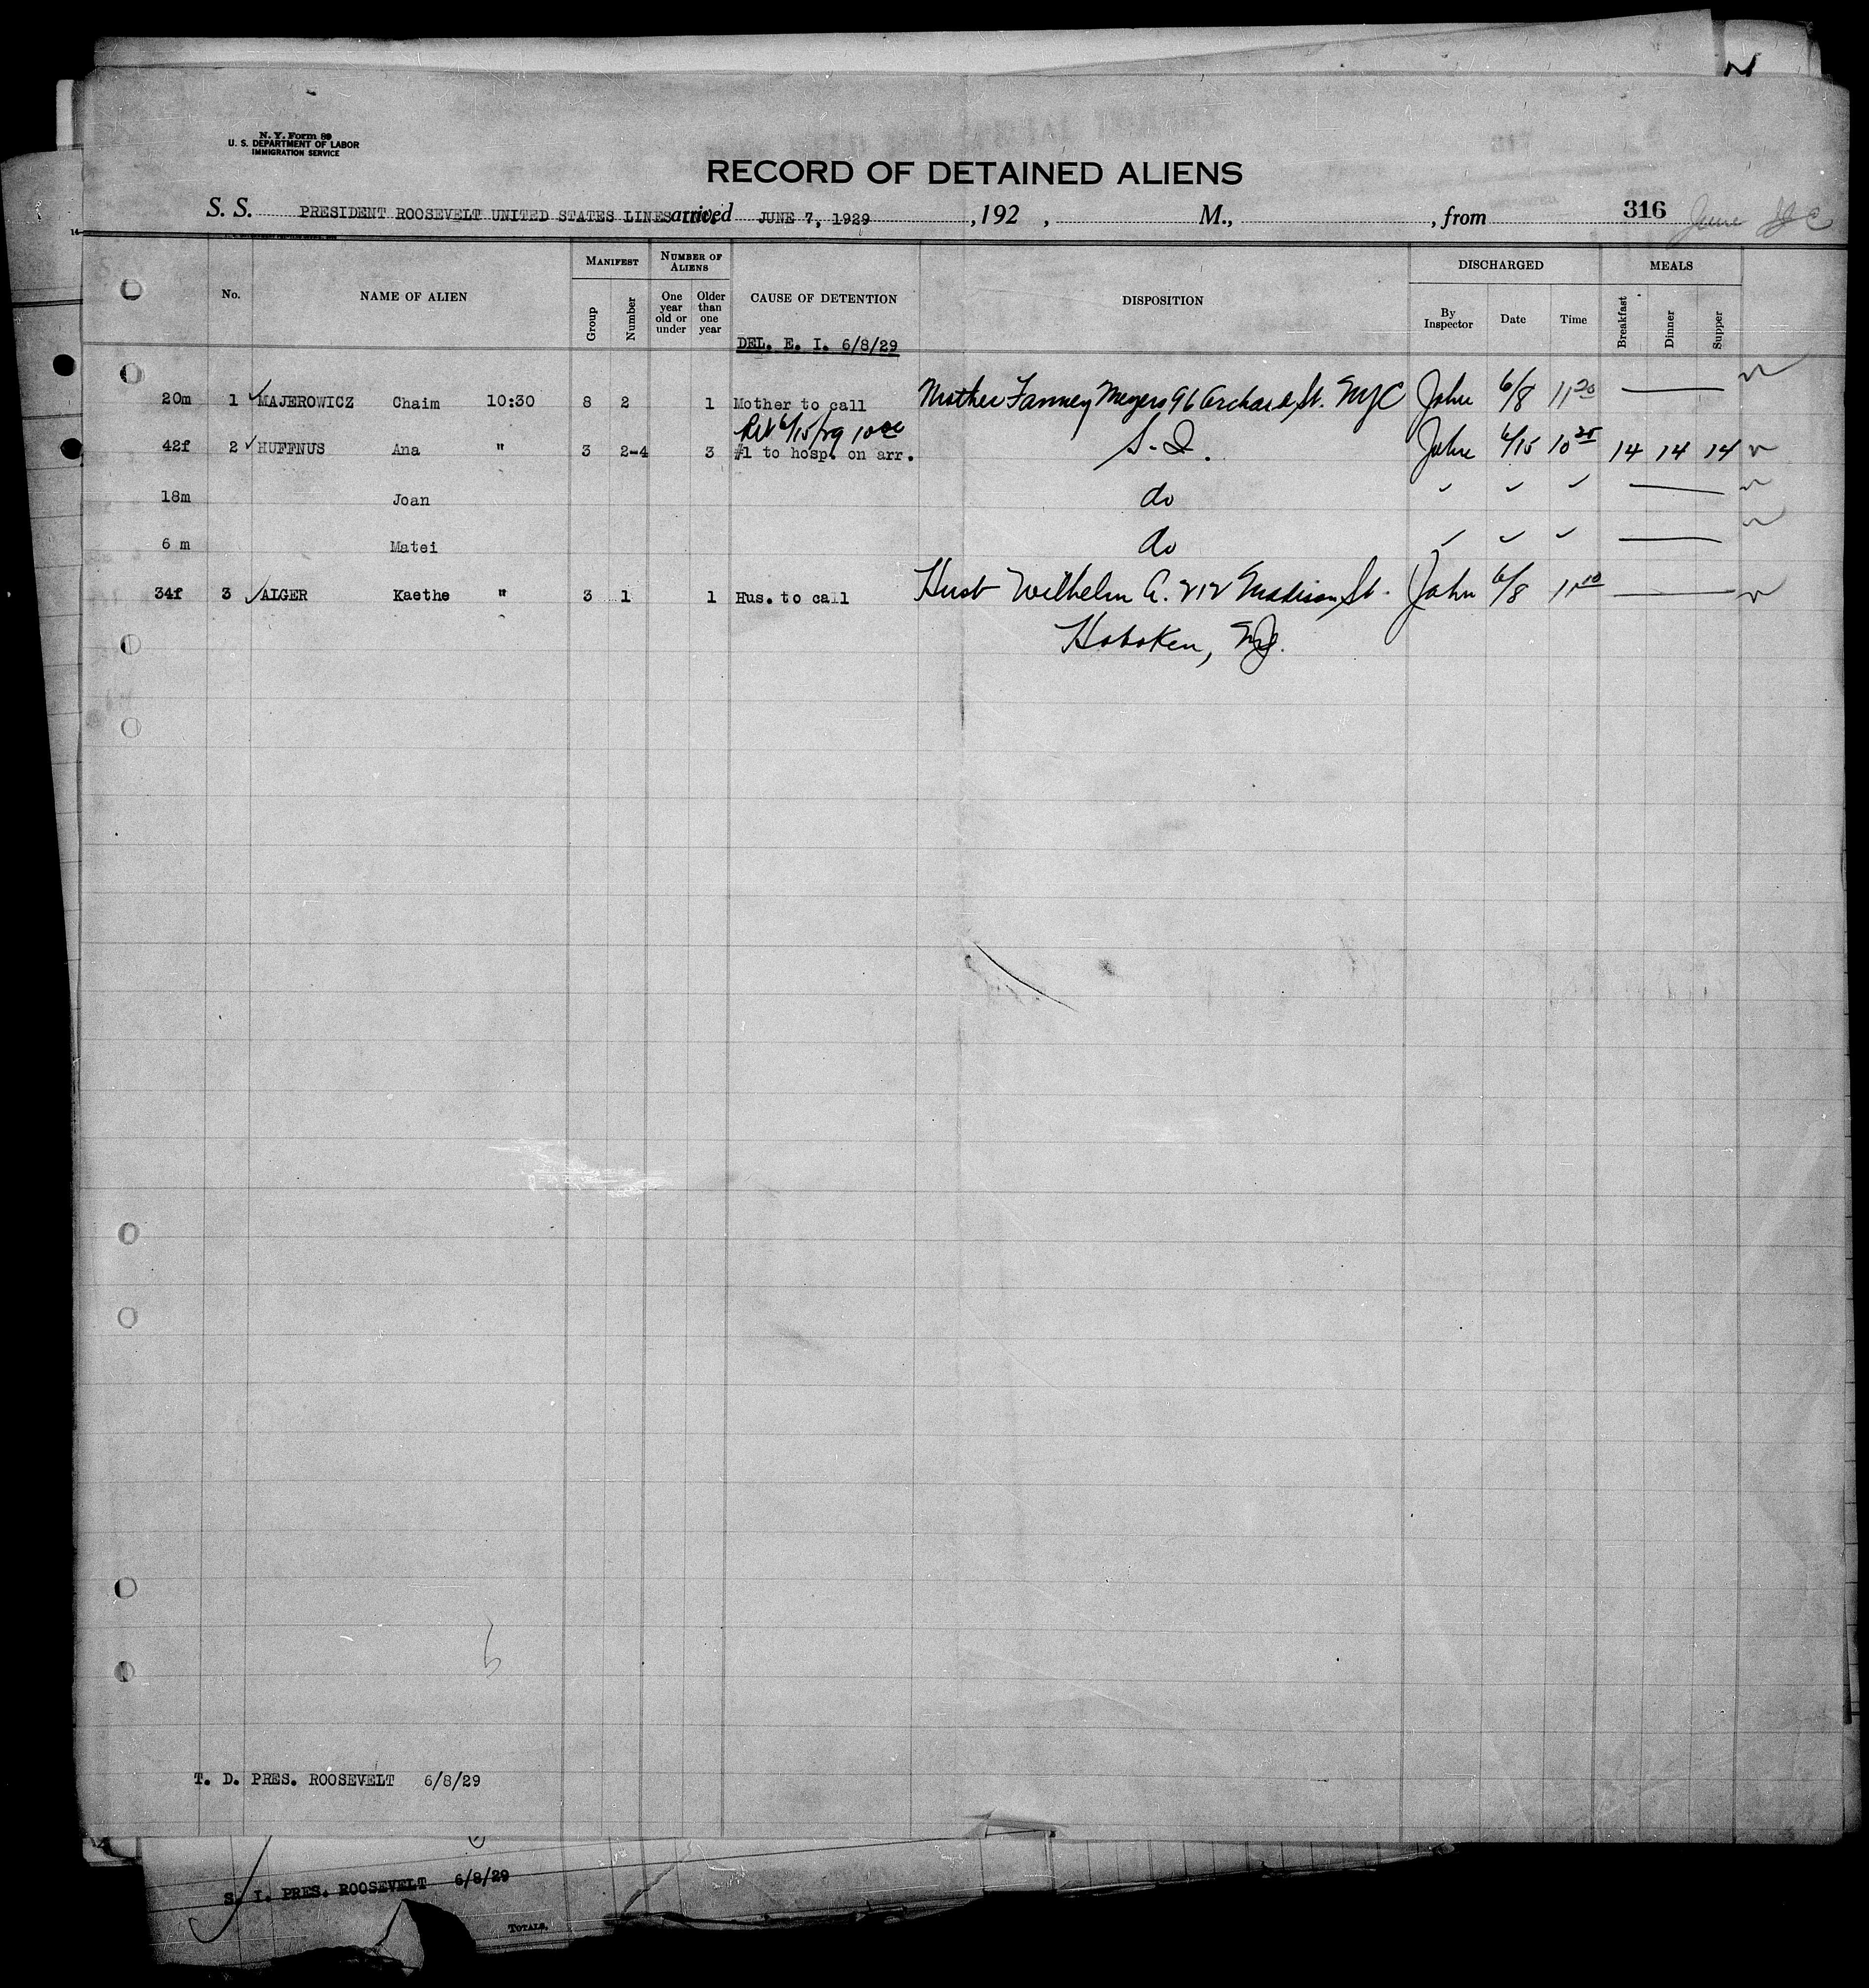 N. Y. Form 89
U. S. DEPARTMENT OF LABOR
IMMIGRATION SERVICE
RECORD OF DETAINED ALIENS
S. S. PRESIDENT ROOSEVELT UNITED STATES LINES arrived JUNE 7, 1929, 192 , M., , from 316 June
MANIFEST NUMBER OF ALIENS DISCHARGED MEALS
No. NAME OF ALIEN Group Number One year old or under Older than one year CAUSE OF DETENTION DISPOSITION By Inspector Date Time Breakfast Dinner Supper
DEL. E. I. 6/8/29
20m 1 MAJEROWICZ Chaim 10:30 8 2 1 Mother to call Mother Fanney Meyers 96 Orchard St. NYC John 6/8 11 20
6/15/29 10
42f 2 HUFFNUS Ana " 3 2-4 3 #1 to hosp. on arr. S. I. John 6/15 10 25 14 14 14
18m Joan do
6 m Matei do
34f 3 AIGER Kaethe " 3 1 1 Hus. to call Husb Wilhelm A. 212 Madison St. John 6/8 11 10
Hoboken, NJ.
T. D. PRES. ROOSEVELT 6/8/29
S. I. PRES. ROOSEVELT 6/8/29
TOTALS.